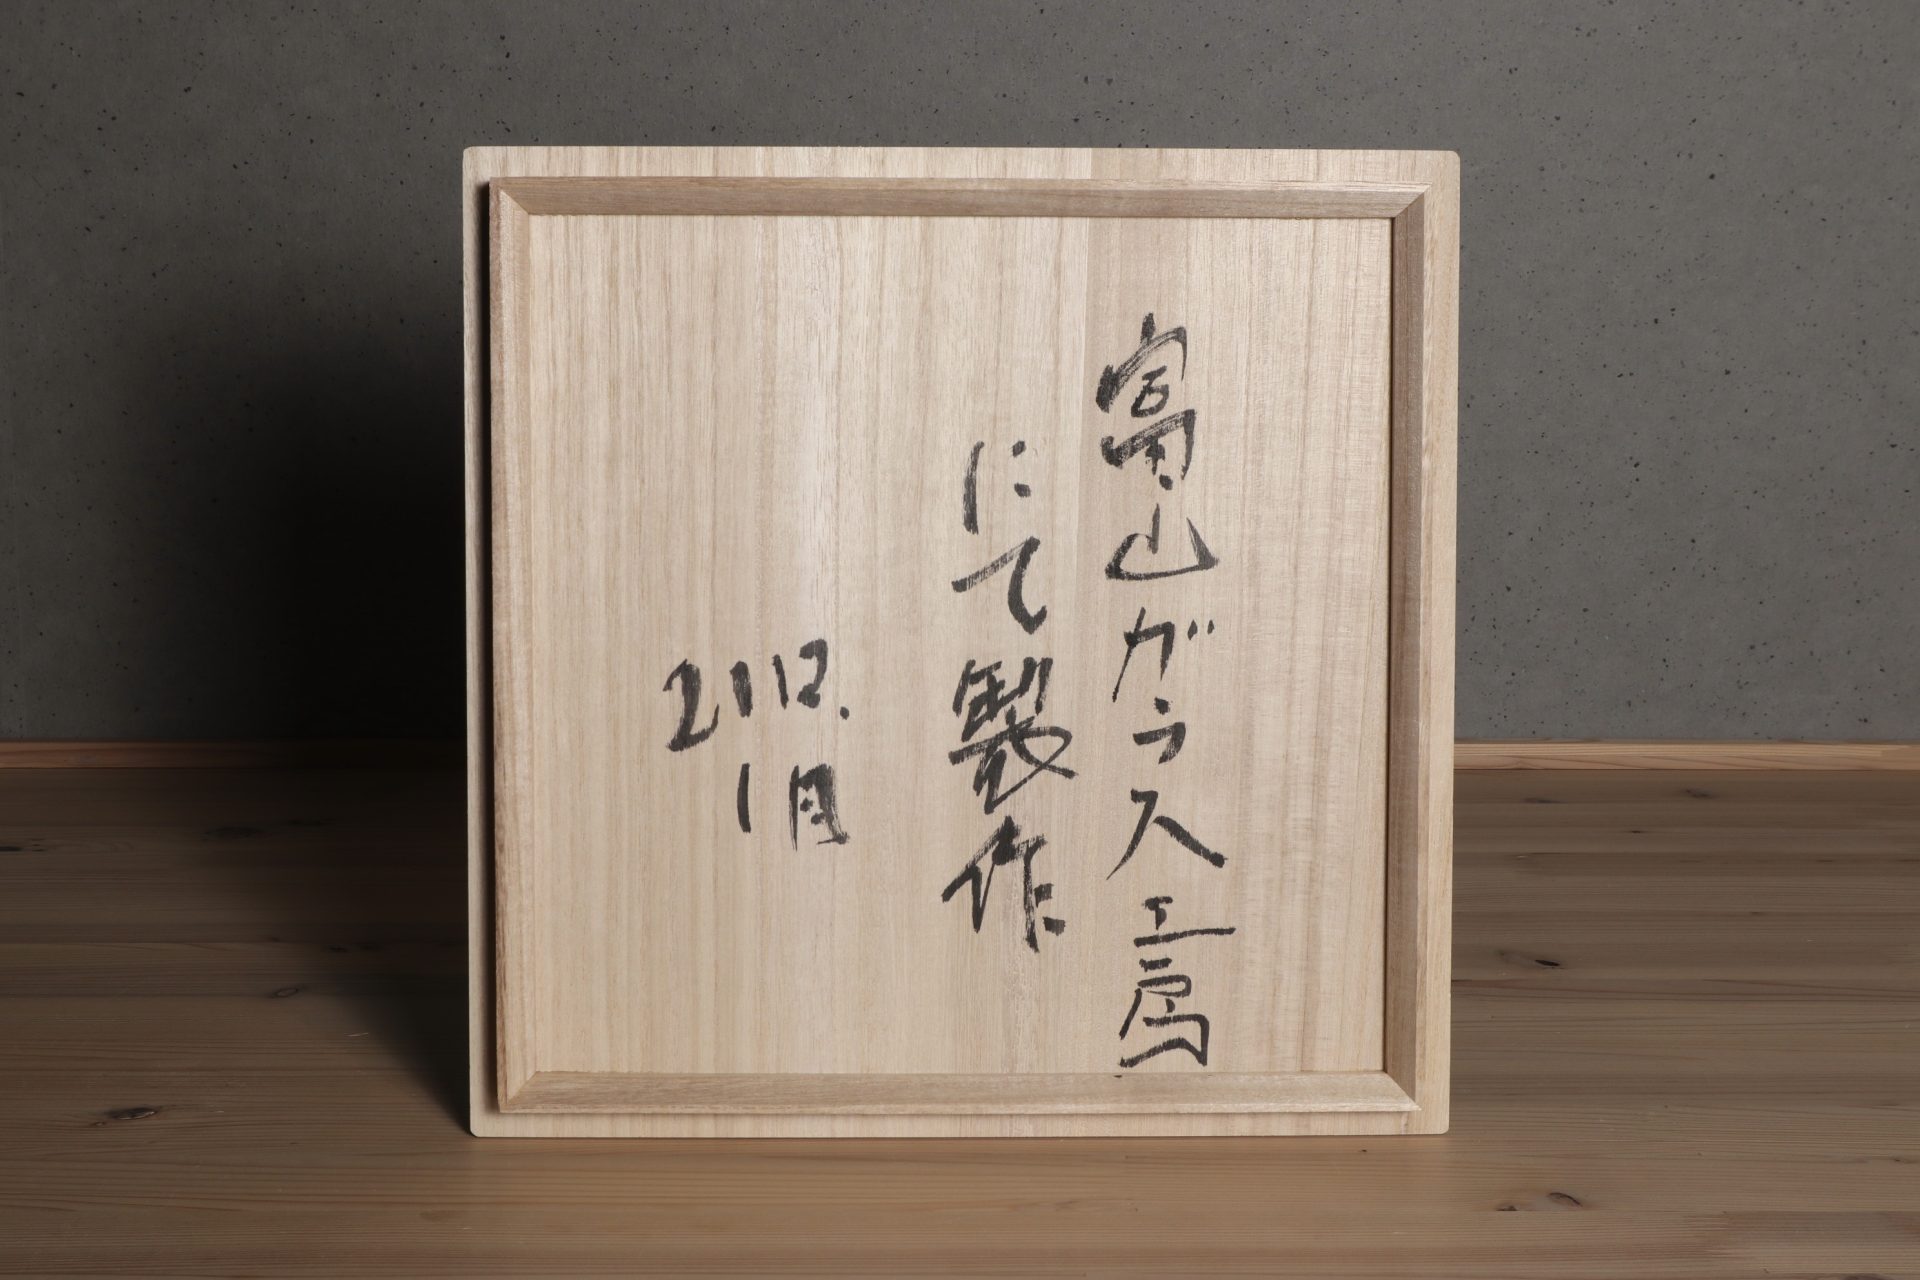 富山ガラス工房
にて製作
2112.
1月